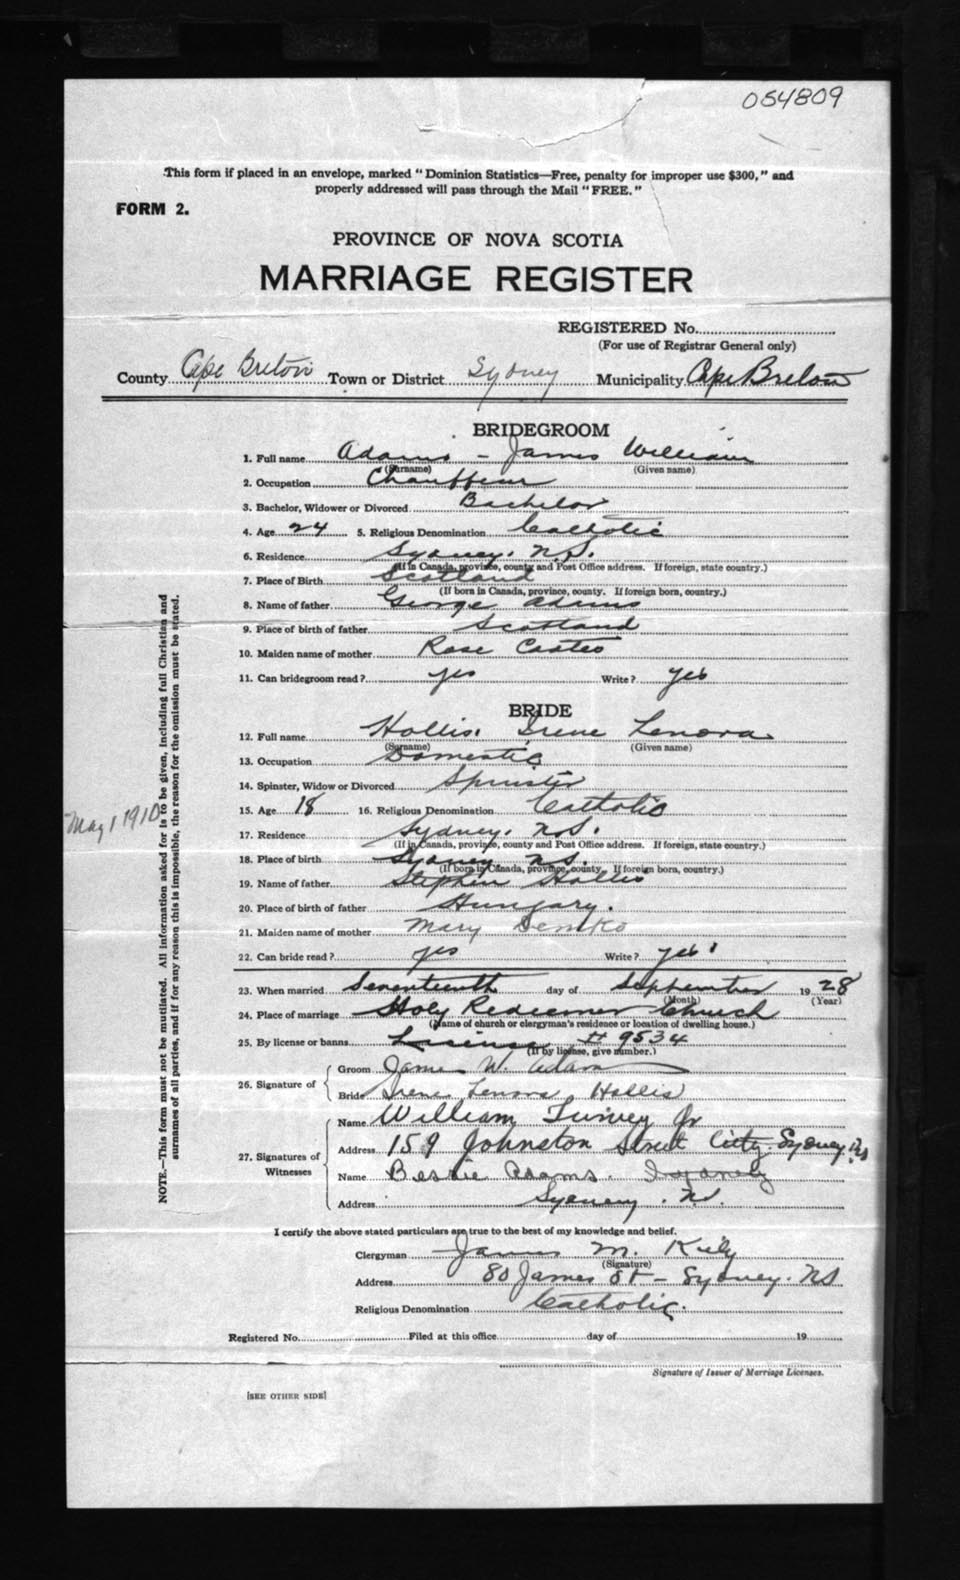 054809
This form if placed in an envelope, marked "Dominion Statistics—Free, penalty for improper use $300," and
properly addressed will pass through the Mail "FREE."
FORM 2.
PROVINCE OF NOVA SCOTIA
MARRIAGE REGISTER
REGISTERED No.
(For use of Registrar General only)
County Cape Breton Town or District Sydney Municipality Cape Breton
BRIDEGROOM
1. Full name Adams - James William
(Surname) (Given name)
2. Occupation Chauffeur
3. Bachelor, Widower or Divorced Bachelor
4. Age 24 5. Religious Denomination Catholic
6. Residence Sydney. N.S.
(If in Canada, province, county and Post Office address. If foreign, state country.)
7. Place of Birth Scotland
(If born in Canada, province, county. If foreign born, country.)
8. Name of father George Adams
9. Place of birth of father Scotland
10. Maiden name of mother Rose
11. Can bridegroom read? yes Write? yes
BRIDE
12. Full name Hollis. Irene Lenora
(Surname) (Given name)
13. Occupation Domestic
14. Spinster, Widow or Divorced Spinster
15. Age 18 16. Religious Denomination Catholic
17. Residence Sydney. N.S.
(If in Canada, province, county and Post Office address. If foreign, state country.)
18. Place of birth Sydney N.S.
(If born in Canada, province, county. If foreign born, country.)
19. Name of father Stephen Hollis
20. Place of birth of father Hungary.
21. Maiden name of mother Mary Demko
22. Can bride read? yes Write? yes
23. When married Seventeenth day of September 19 28
(Month) (Year)
24. Place of marriage Holy Redeemer Church
(Name of church or clergyman's residence or location of dwelling house.)
25. By license or banns License # 9534
(If by license, give number.)
26. Signature of
Groom James W. Adams
Bride Irene Lenora Hollis
27. Signatures of Witnesses
Name William Turvey Jr
Address 159 Johnston Street City Sydney NS
Name Bessie Adams.
Address Sydney. N.S.
I certify the above stated particulars are true to the best of my knowledge and belief.
Clergyman James M. Kiely
(Signature)
Address 80 James St - Sydney. NS
Religious Denomination Catholic.
Registered No. Filed at this office day of 19
Signature of Issuer of Marriage Licenses.
[SEE OTHER SIDE]
NOTE.—This form must not be mutilated. All information asked for is to be given, including full Christian and
surnames of all parties, and if for any reason this is impossible, the reason for the omission must be stated.
May 1 1910